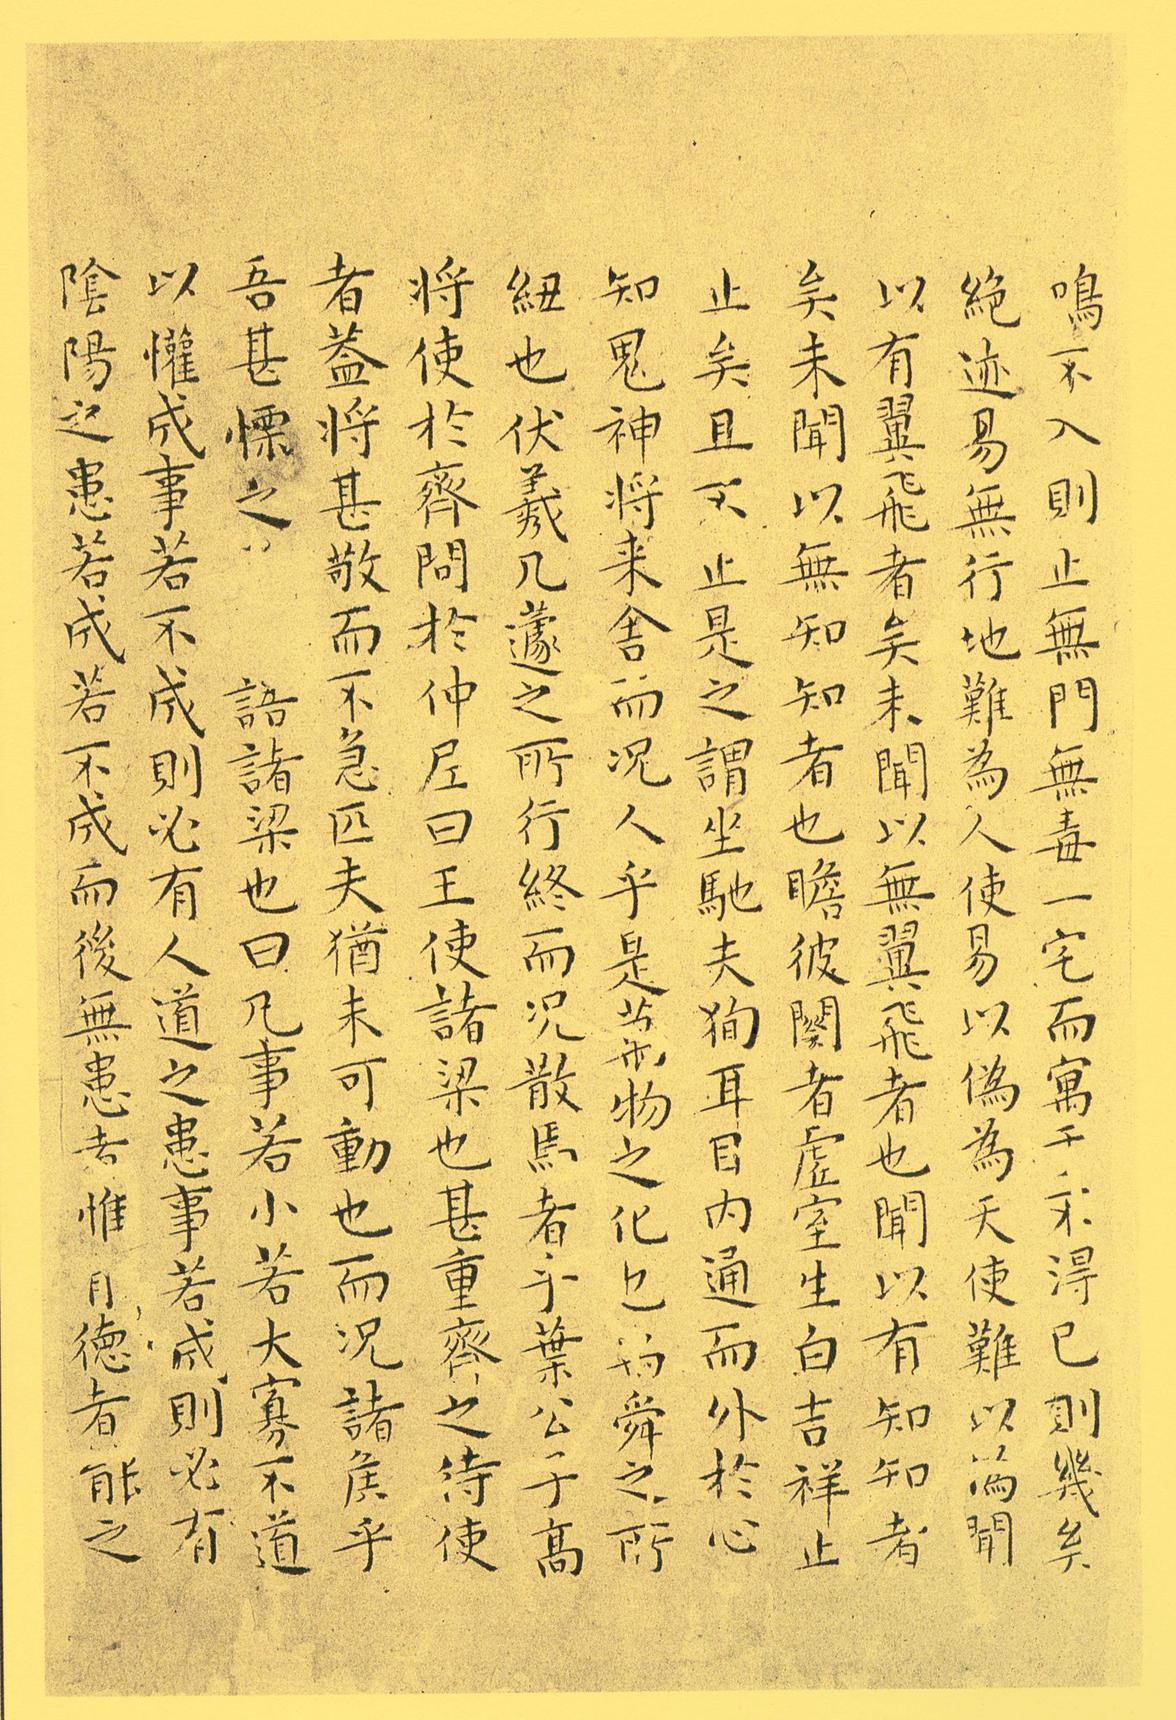 鳴不入則止無門無毒一宅而寓于不得已則幾矣
絕迹易無行地難為人使易以偽為天使難以偽聞
以有翼飛者矣未聞以無翼飛者也聞以有知知者
矣未聞以無知知者也瞻彼闋者虛室生白吉祥止
止矣且不止是之謂坐馳夫徇耳目內通而外於心
知鬼神將来舍而況人乎是萬物之化也禹舜之所
紐也伏羲几蘧之所行終而況散焉者乎葉公子高
将使於齊問於仲尼曰王使諸梁也甚重齊之待使
者蓋将甚敬而不急匹夫猶未可動也而況諸侯乎
吾甚慄之 語諸梁也曰凡事若小若大寡不道
以懽成事若不成則必有人道之患事若成則必有
陰陽之患若成若不成而後無患者惟有德者能之